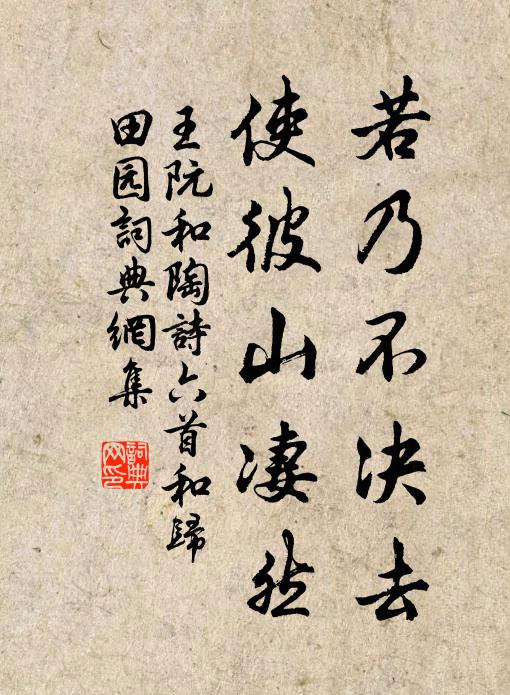 若乃不决去
使彼山凄然
王阮和陶詩六首和歸
田园詞典網集
詞典网印